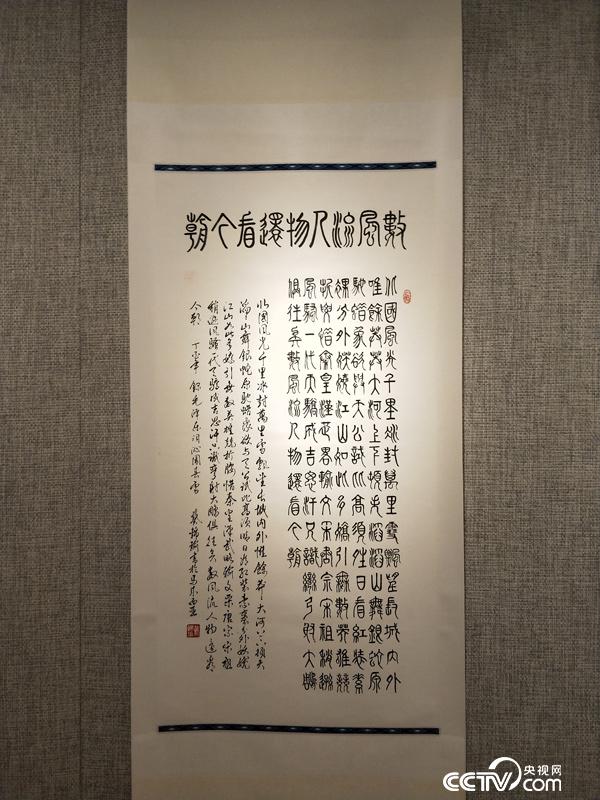 數風流人物還看今朝
北國風光千里冰封萬里雪飄望長城內外
唯餘莽莽大河上下頓失滔滔山舞銀蛇原
馳蠟象欲與天公試比高須晴日看紅裝素
裹分外妖嬈江山如此多嬌引無數英雄競
折腰惜秦皇漢武略輸文采唐宗宋祖稍遜
風騷一代天驕成吉思汗只識彎弓射大鵰
俱往矣數風流人物還看今朝
北國風光千里冰封萬里雪飄望長城內外惟餘莽莽大河上下頓失
滔滔山舞銀蛇原馳蠟象欲與天公試比高須晴日看紅裝素裹分外妖嬈
江山如此多嬌引無數英雄競折腰惜秦皇漢武略輸文采唐宗宋祖
稍遜風騷一代天驕成吉思汗只識彎弓射大鵰俱往矣數風流人物還看
今朝 丁酉年 錄毛澤東詞沁園春雪
CCTV.com 央视网